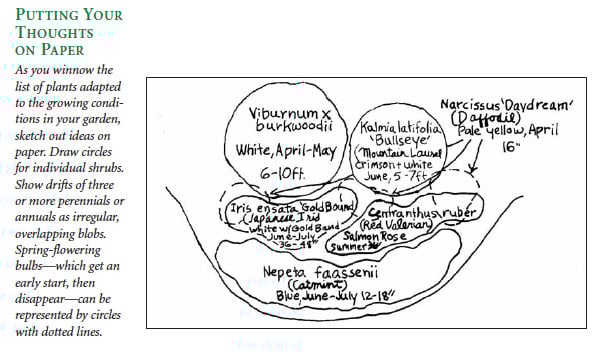 PUTTING YOUR
THOUGHTS
ON PAPER
As you winnow the
list of plants adapted
to the growing condi-
tions in your garden,
sketch out ideas on
paper. Draw circles
for individual shrubs.
Show drifts of three
or more perennials or
annuals as irregular,
overlapping blobs.
Spring-flowering
bulbs—which get an
early start, then
disappear—can be
represented by circles
with dotted lines.
Viburnum x
burkwoodii
White, April-May
6-10ft.
Kalmia latifolia
'Bullseye'
(Mountain Laurel
Crimson + white
June, 5-7ft.
Narcissus 'Daydream'
(Daffodil)
Pale yellow, April
16"
Iris ensata 'Gold Bound'
(Japanese Iris
White w/Gold Band
June-July
36-48"
Centranthus ruber
(Red Valerian)
Salmon Rose
Summer
Nepeta faassenii
(Catmint)
Blue, June-July 12-18"